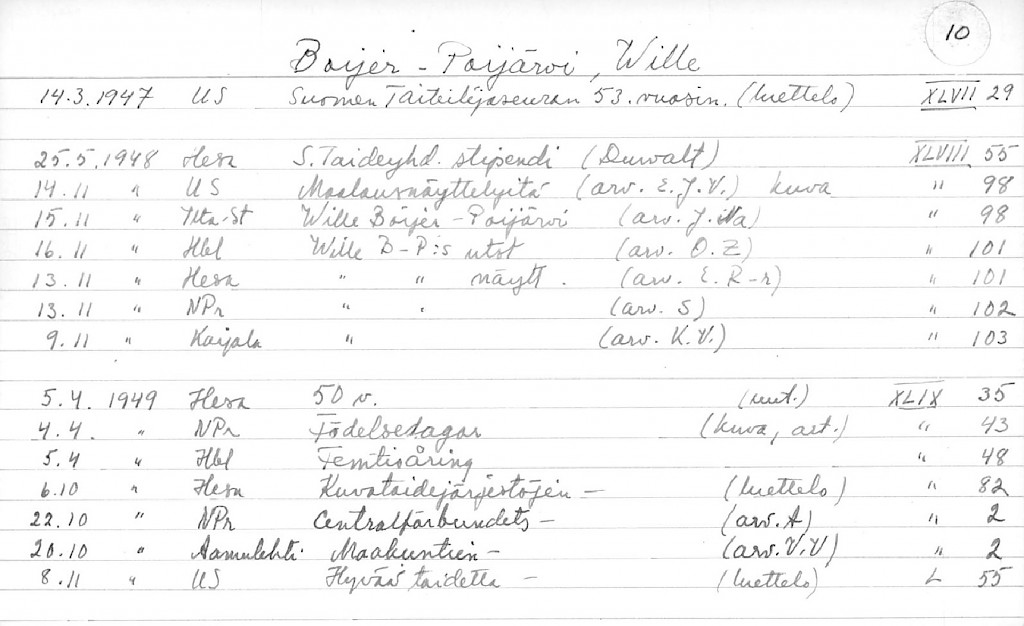 10
Boijer-Poijärvi, Wille
14.3.1947 US Suomen Taiteilijaseuran 53. vuosin. (luettelo) XLVII 29
25.5.1948 Hesa S. Taideyhd. stipendi (Duwalt) XLVIII 55
14.11 " US Maalausnäyttelyitä (arv. E.J.V.) kuva " 98
15.11 " Ilta-St Wille Boijer-Poijärvi (arv. J. " 98
16.11 " Hbl Wille B-P:s utst (arv. O.Z) " 101
13.11 " Hesa " " näytt. (arv. E. R-r) " 101
13.11 " NPr " " (arv. S) " 102
9.11 " Karjala " (arv. K.V.) " 103
5.4. 1949 Hesa 50 v. (uut.) XLIX 35
4.4. " NPr Födelsedagar (kuva, art.) " 43
5.4 " Hbl Femtioåring " 48
6.10 " Hesa Kuvataidejärjestöjen - (luettelo) " 82
22.10 " NPr Centralförbundets - (arv. A) " 2
20.10 " Aamulehti Maakuntien - (arv. V.V) " 2
8.11 " US Hyvää taidetta - (luettelo) L 55